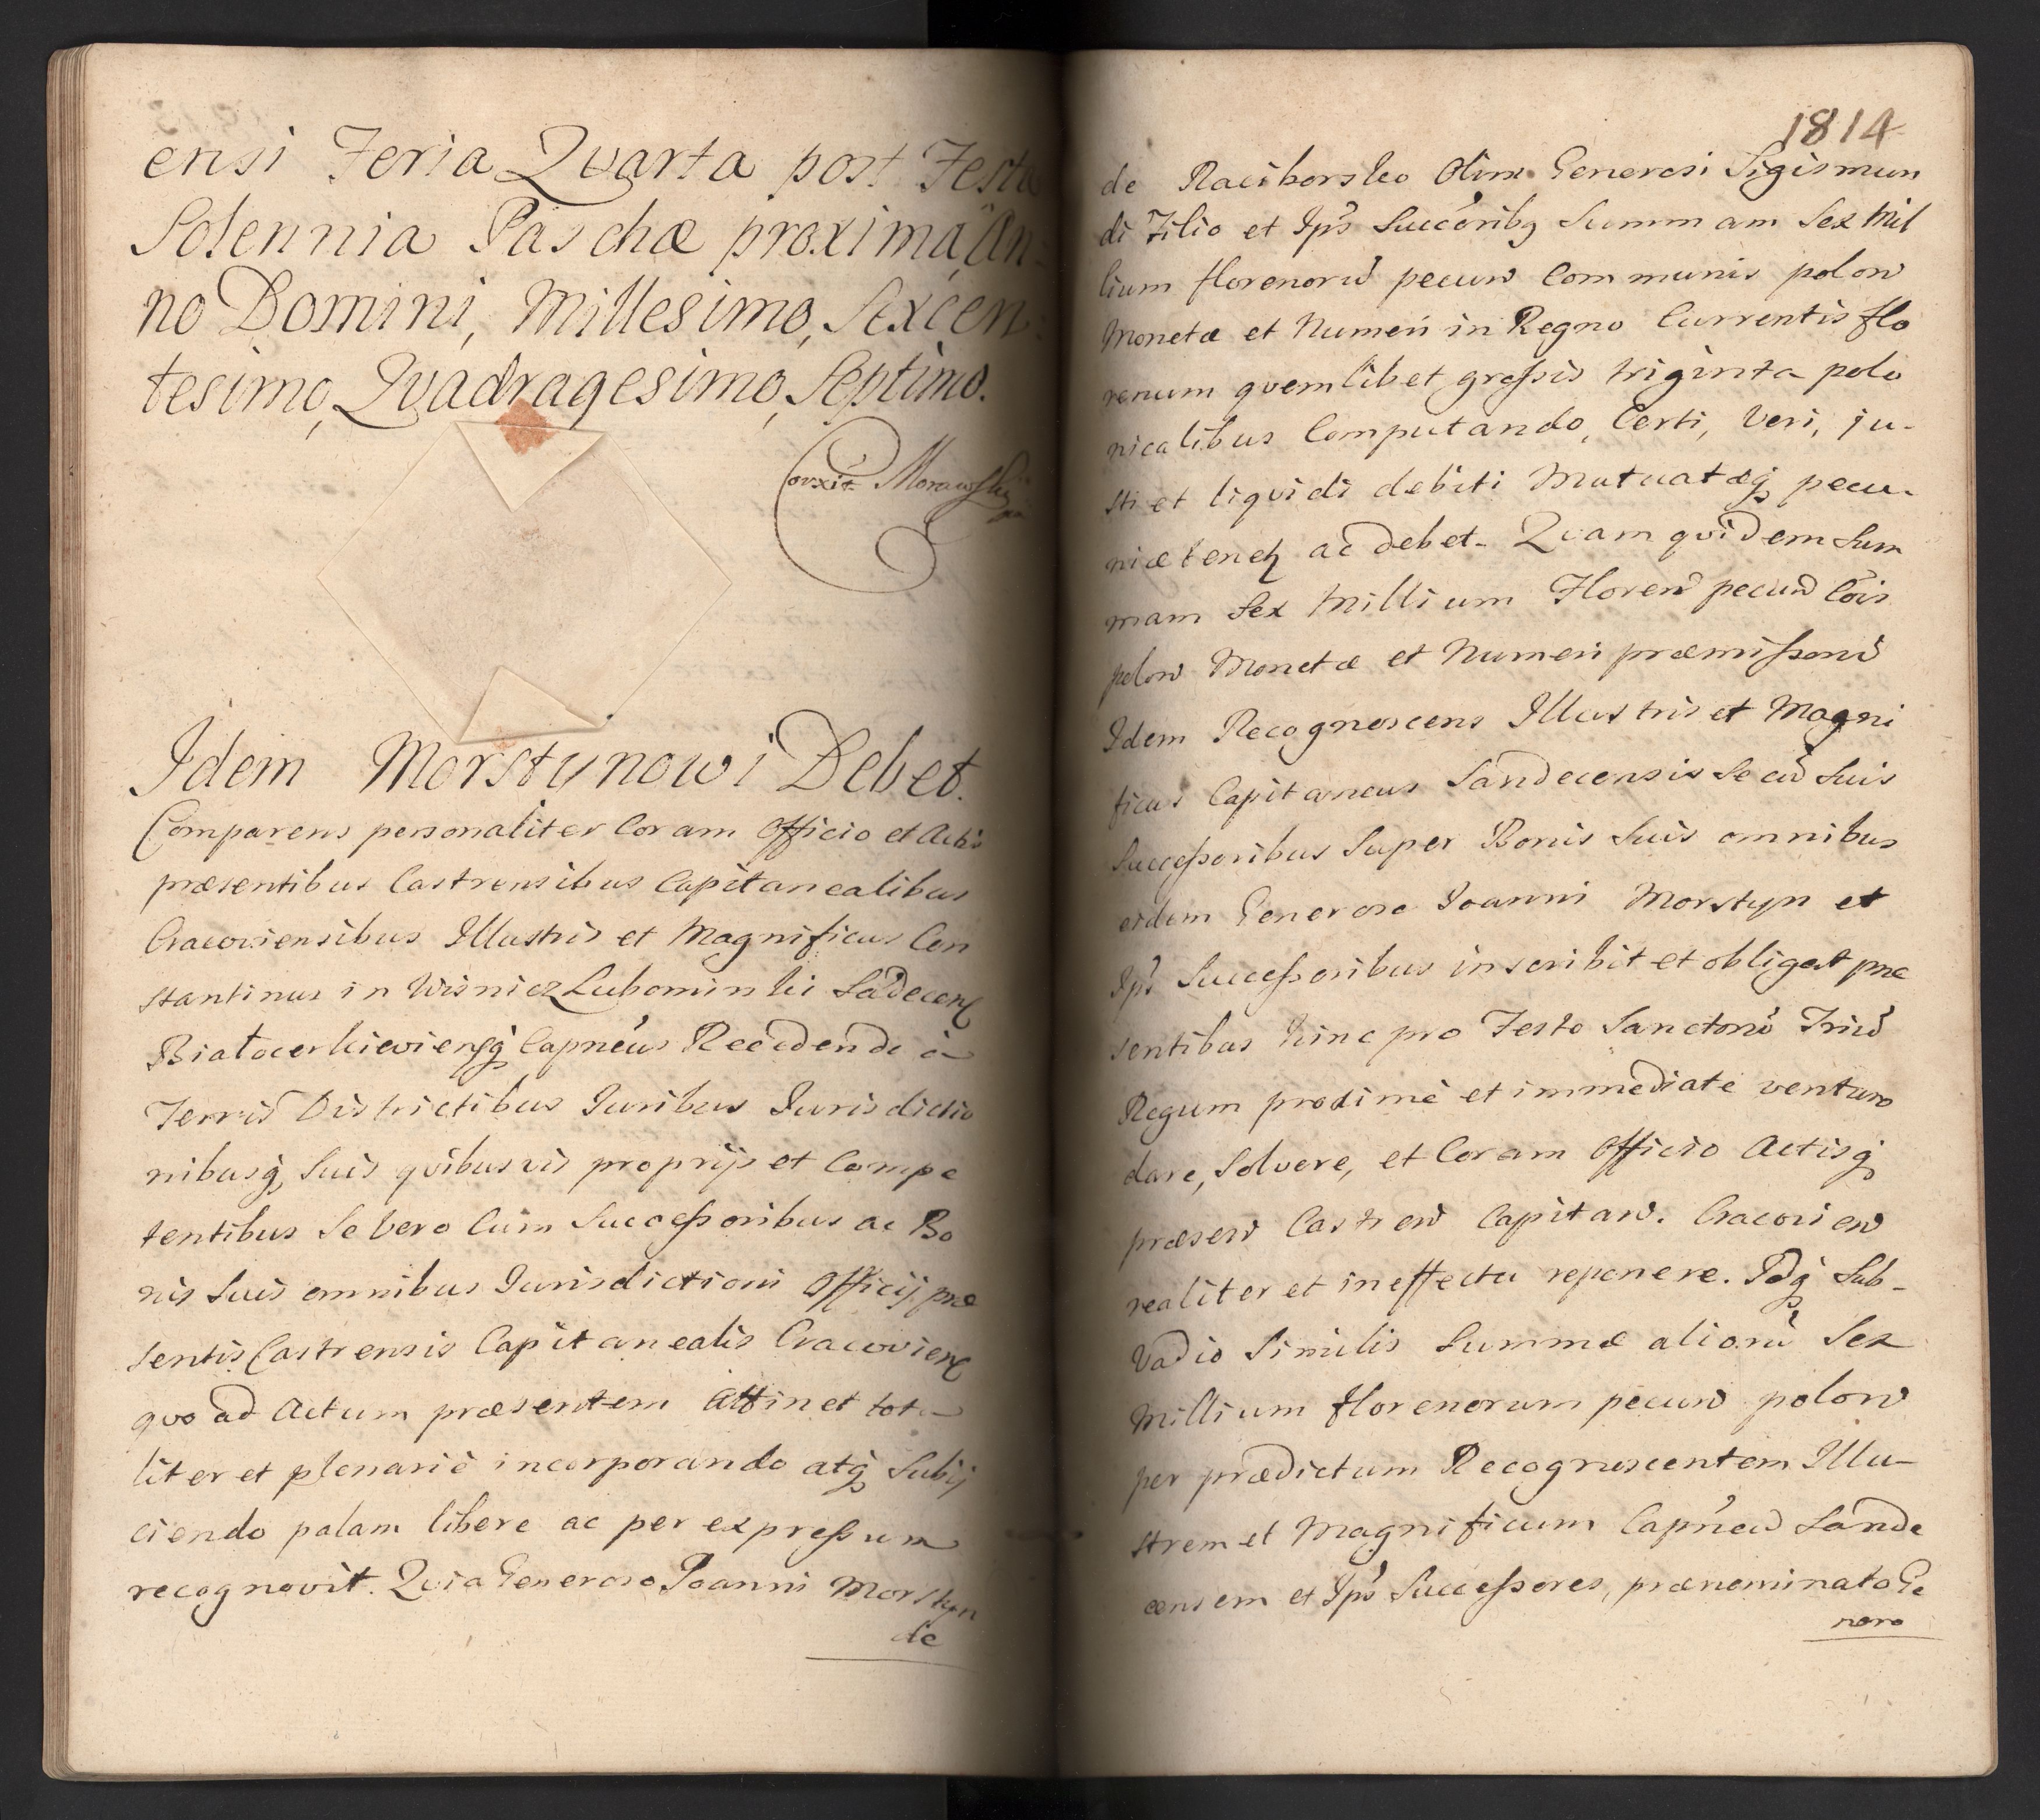 ensi Feria Quarta post Festa
Solennia Paschæ proxima, An-
no Domini, Millesimo, Sexcen:
tesimo, Quadragesimo, Septimo.
Corrxit Morawski
Idem Morstynowi Debet.
Comparens personaliter Coram Officio et Actis
præsentibus Castrensibus Capitanealibus
Cracoviensibus Illustris et Magnificus Con
stantinus in Wisnicz Lubomirski Sãdecenꝭ
Białocerkieviensqꝫ Capnéus Recedendo à
Terris Districtibus Juribus Jurisdictio
nibusqꝫ Suis quibusvis proprijs et Compe
tentibus Se vero Cum Successoribus ac Bo
nis Suis omnibus Jurisdictioni Officij præ
sentis Castrensis Capitanealis Cracovienꝭ
quo ad Actum præsentem Attinet tota
liter et plenariè incorporando atqꝫ Subij
ciendo palam libere ac per expressum
recognovit. Quia Generoso Joanni Morstyn
de
1814
de Raciborsko Olim Generosi Sigismun
di Filio et Ips̃ Succẽribꝫ Summam Sex Mil
lium florenorũ pecuñ Communis poloñ
Monetæ et Numeri in Regno Currentis flo
renum quemlibet grossis triginta polo
nicalibus Computando, Certi, Veri, ju-
sti et liquidi debiti Mutuatæqꝫ pecu-
niæ tenetꝶ ac debet. Quam quidem Sum
mam Sex Millium Floreñ pecuñ Cõis
poloñ Monetæ et Numeri præmissorũ
Idem Recognoscens Illustris et Magni
ficus Capitaneus Sandecensis Se cũ Suis
Successoribus Super Bonis Suis omnibus
eidem Generoso Joanni Morstyn et
Ips̃ Successoribus inscribit et obligat præ
sentibus hinc pro Festo Sanctorũ Triũ
Regum proximè et immediatè venturo
dare, Solvere, et Coram Officio Actisqꝫ
præseñ Castreñ Capitañ. Cracovieñ
realiter et in effectu reponere. Idqꝫ Sub-
Vadio Similis Summæ aliorũ Sex
Millium florenorum pecuñ poloñ
per prædictum Recognoscentem Illu-
strem et Magnificum Capneũ Sande
censem et Ips̃ Successores, prænominato Ge
nero